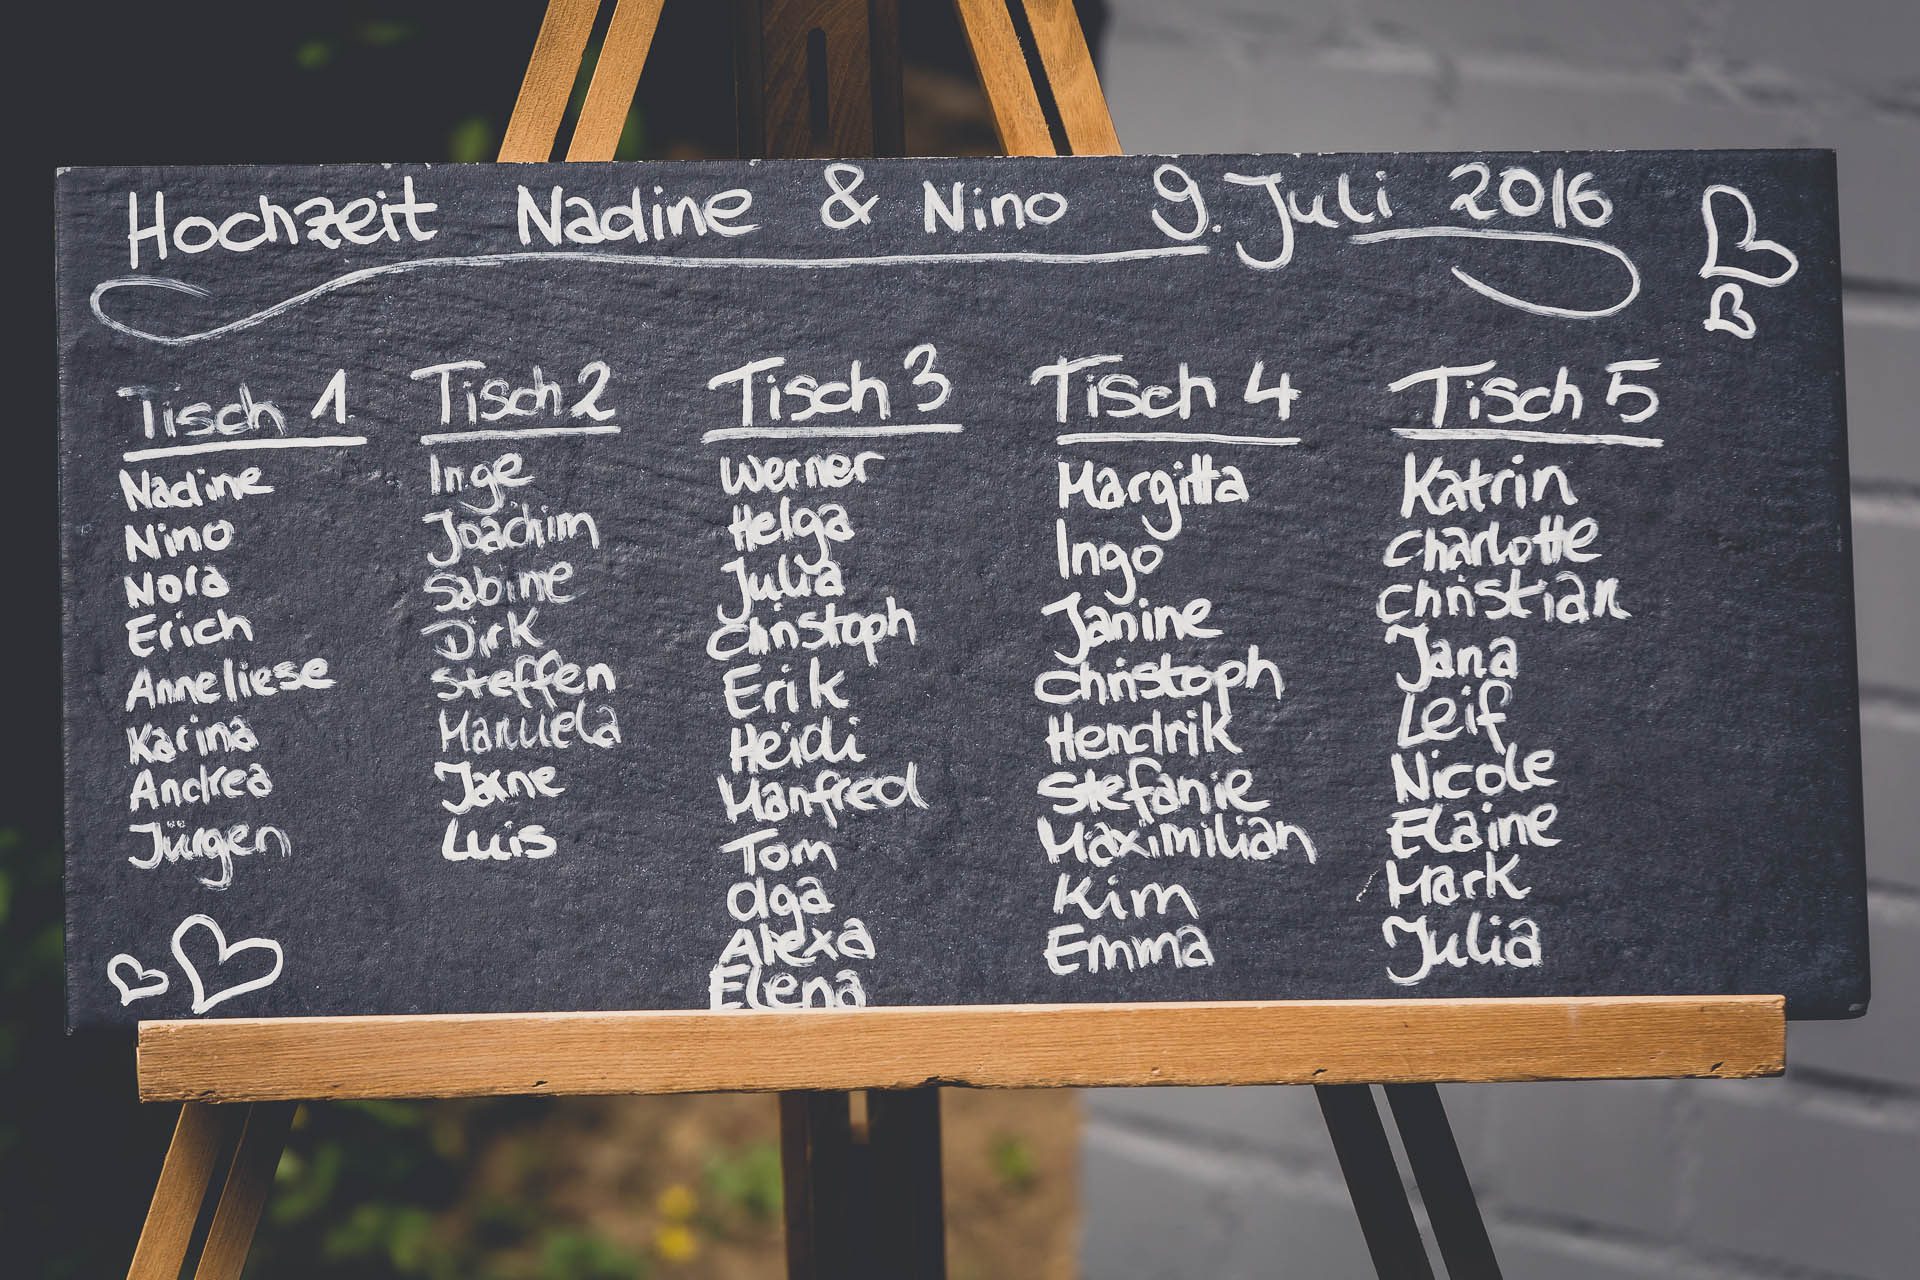 Hochzeit Nadine & Nino 9. Juli 2016
Tisch 1
Nadine
Nino
Nora
Erich
Anneliese
Karina
Andrea
Jürgen
Tisch 2
Inge
Joachim
Sabine
Dirk
Steffen
Manuela
Jane
Luis
Tisch 3
Werner
Helga
Julia
Christoph
Erik
Heidi
Manfred
Tom
Olga
Alexa
Elena
Tisch 4
Margitta
Ingo
Janine
Christoph
Hendrik
Stefanie
Maximilian
Kim
Emma
Tisch 5
Katrin
Charlotte
Christian
Jana
Leif
Nicole
Elaine
Mark
Julia